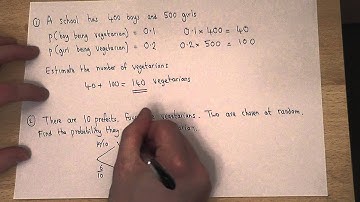 ① A school has 400 boys and 500 girls
p(boy being vegetarian) = 0.1    0.1 × 400 = 40
p(girl being vegetarian) = 0.2    0.2 × 500 = 100
Estimate the number of vegetarians
40 + 100 = 140 vegetarians
② There are 10 prefects. vegetarians. Two are chosen at random.
Find the probability they
4/10
6/10